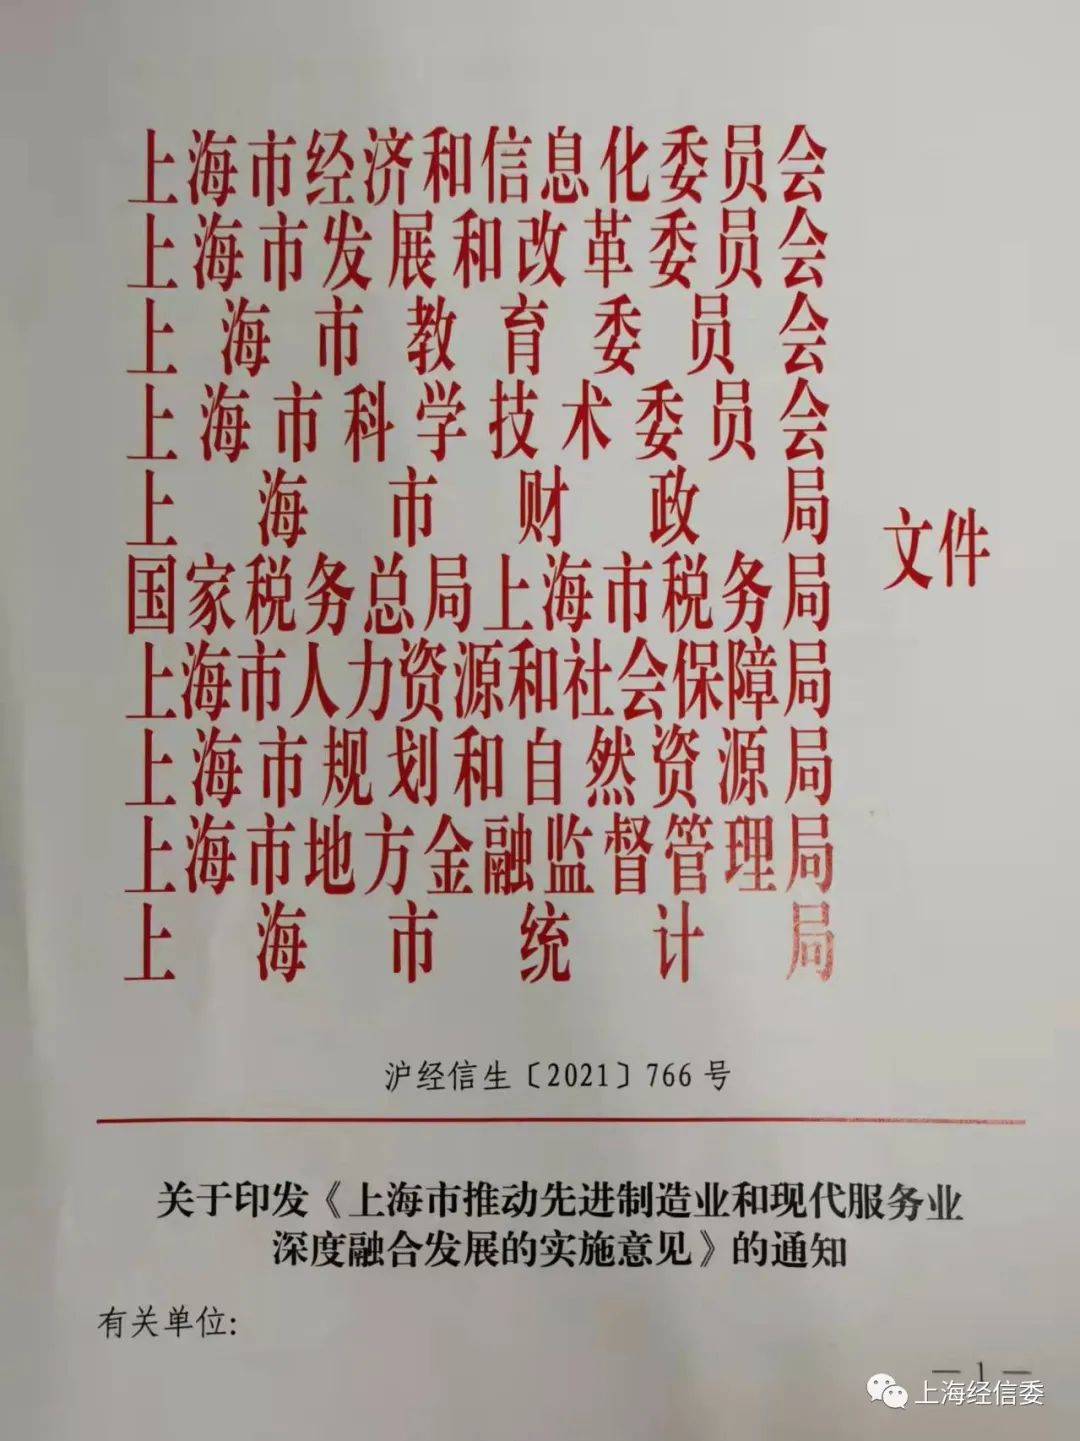 上海市经济和信息化委员会
上海市发展和改革委员会
上海市教育委员会
上海市科学技术委员会
上海市财政局
国家税务总局上海市税务局
上海市人力资源和社会保障局
上海市规划和自然资源局
上海市地方金融监督管理局
上海市统计局
文件
沪经信生〔2021〕766号
关于印发《上海市推动先进制造业和现代服务业
深度融合发展的实施意见》的通知
有关单位:
— 1 —
上海经信委